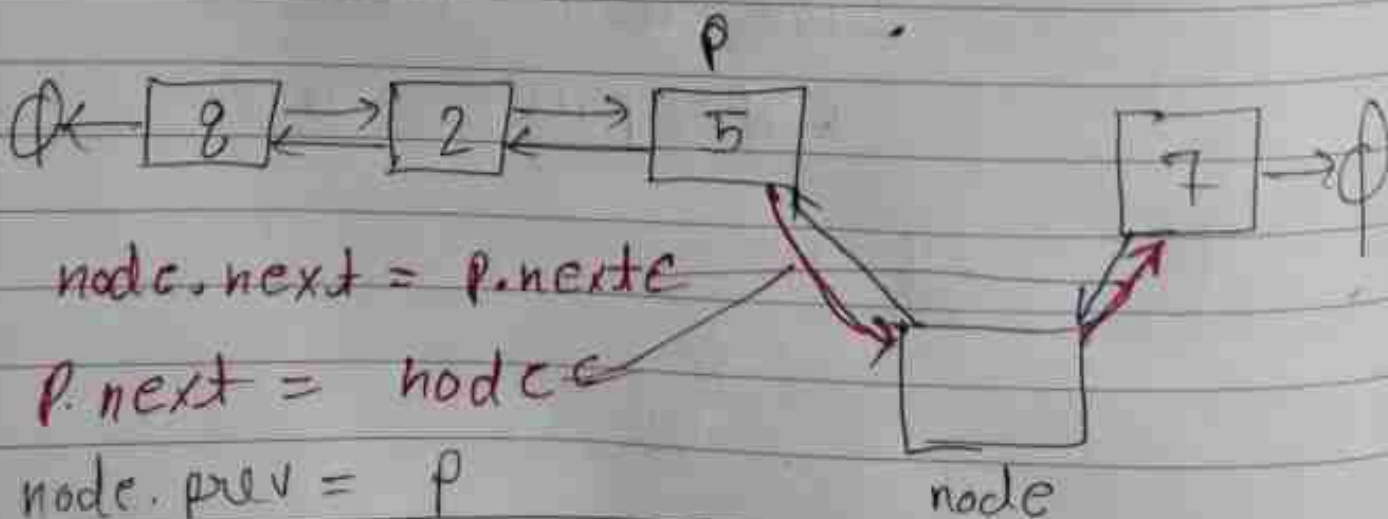 p
8 2 5 7
node.next = p.next
p.next = node
node.prev = p
node